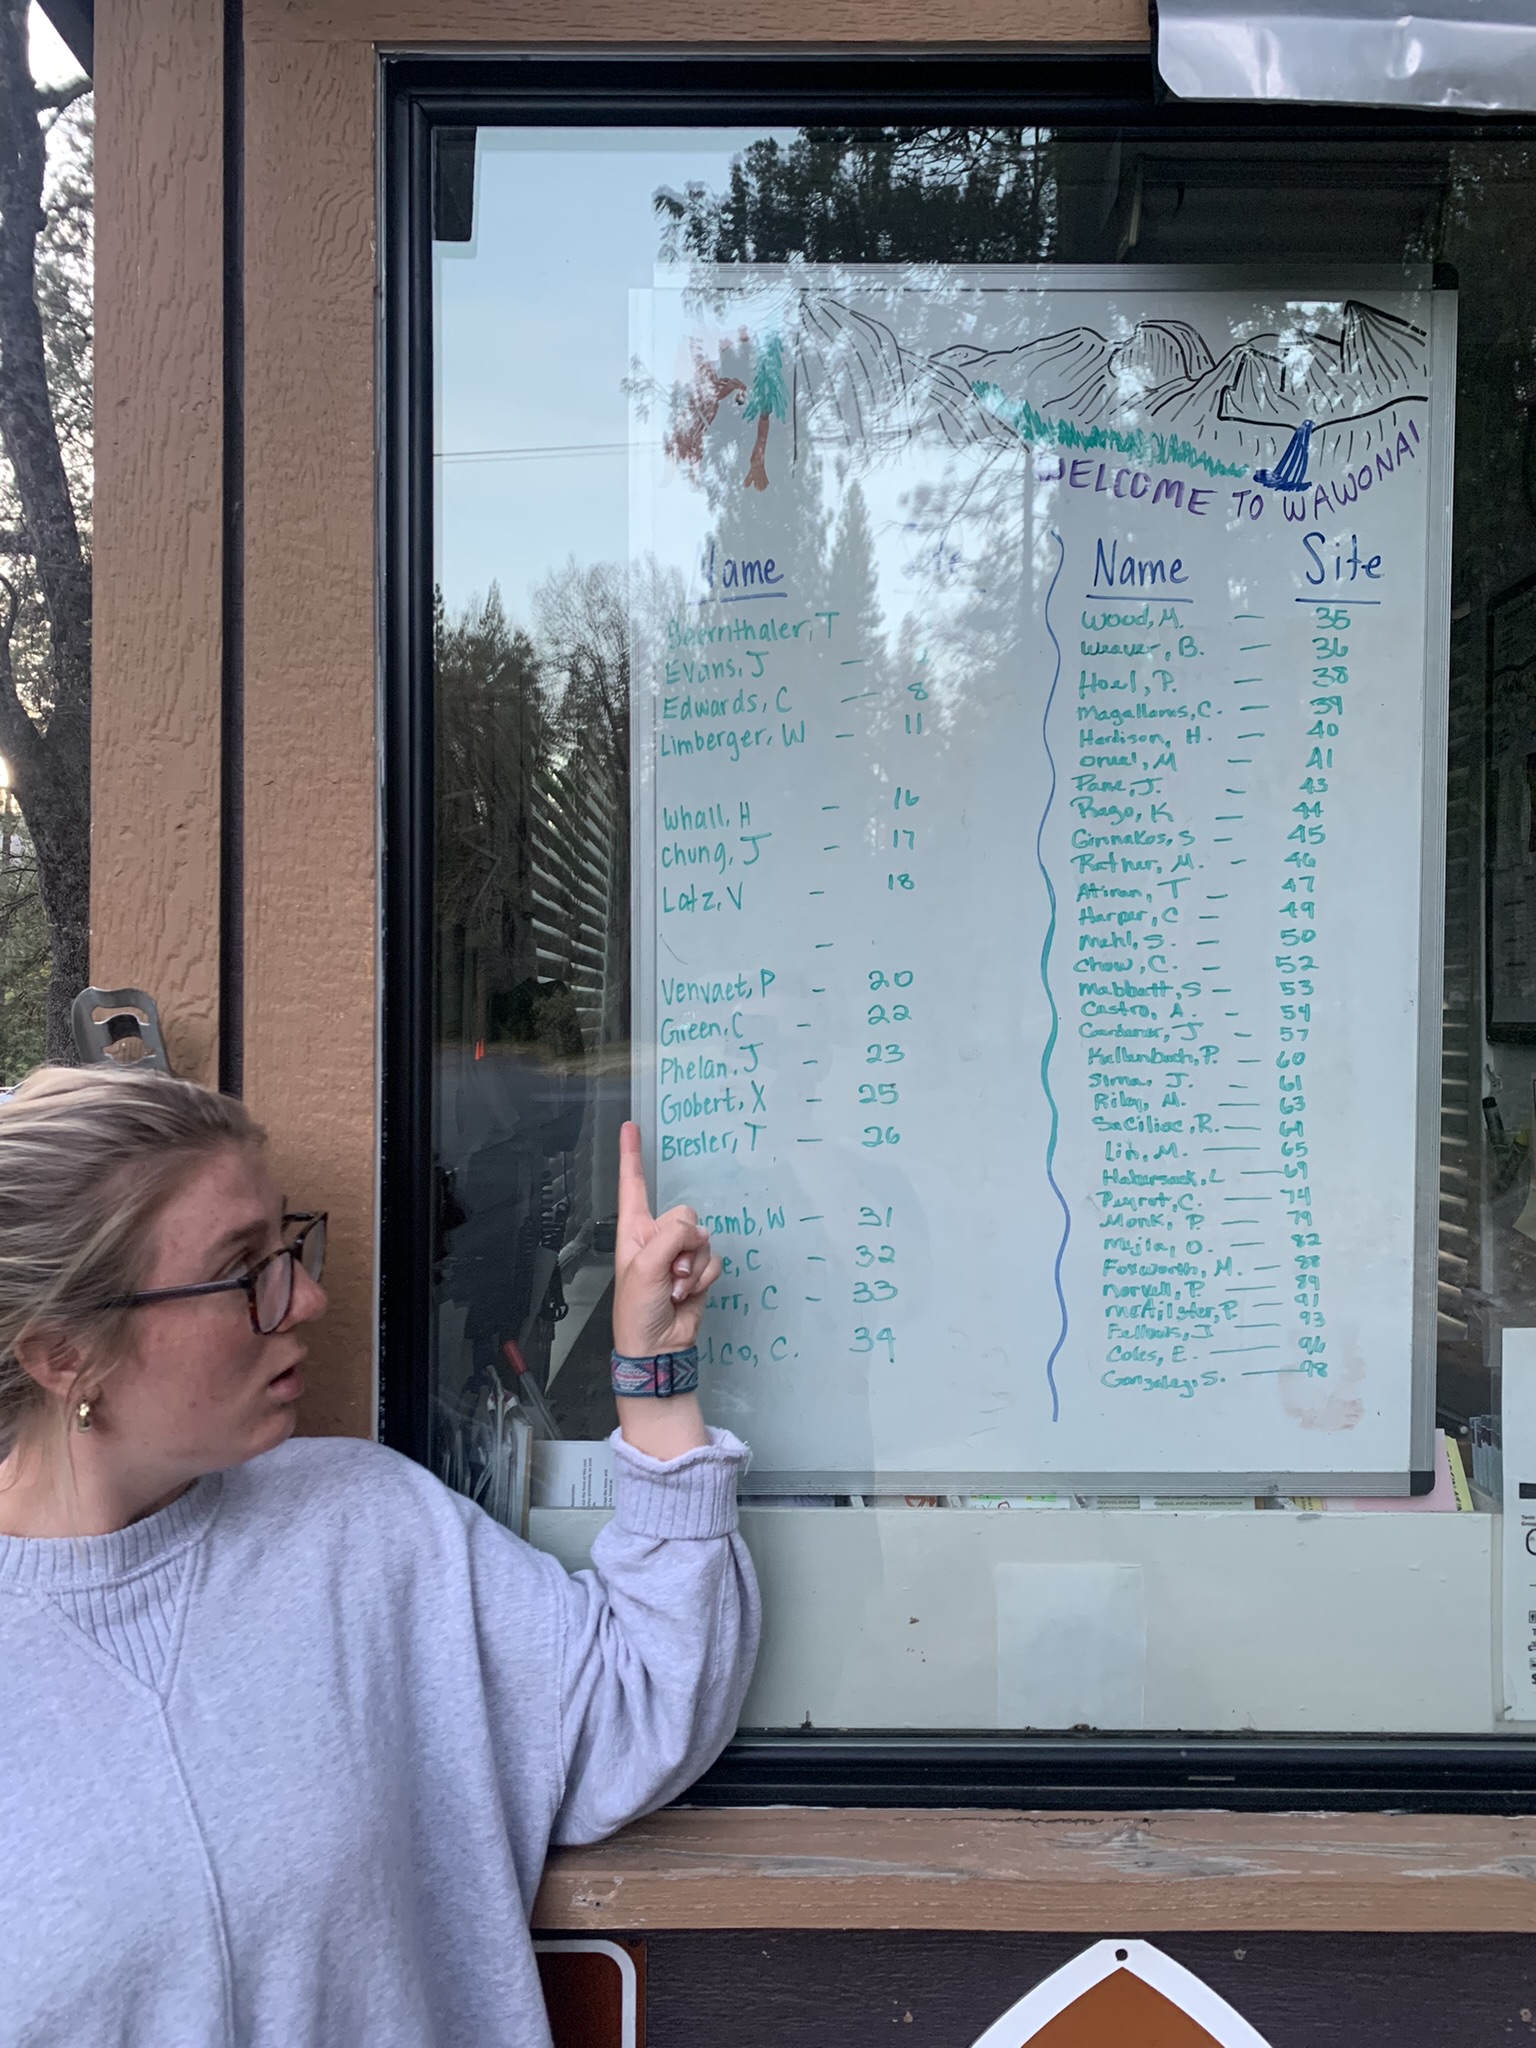 WELCOME TO WAWONA!
ame
Evans, J –
Edwards, C – 8
Limberger, W – 11
Whall, H – 16
Chung, J – 17
Lotz, V – 18
–
Venvaet, P – 20
Green, C – 22
Phelan, J – 23
Gobert, X – 25
Bresler, T – 26
comb, W – 31
e, C – 32
urr, C – 33
lco, C. 34
Name Site
Wood, M. – 35
Weaver, B. – 36
Hoel, P. – 38
Magallanes, C. – 39
Hardison, H. – 40
Oneal, M – 41
Pane, J. – 43
Rago, K – 44
Ginnakos, S – 45
Ratner, M. – 46
Atinan, T – 47
Harper, C – 49
Mehl, S. – 50
Chow, C. – 52
Mabbott, S – 53
Castro, A. – 54
Gardener, J – 57
Kallenbach, P. – 60
Sima, J. – 61
Riley, M. – 63
R. – 64
Lin, M. – 65
Habersack, L – 69
Peyrot, C. – 74
Monk, P. – 79
Mejia, O. – 82
Foxworth, M. – 88
Norvell, P. – 89
McAilster, P. – 91
Fellows, J – 93
Coles, E. – 96
Gonzalez, S. – 98